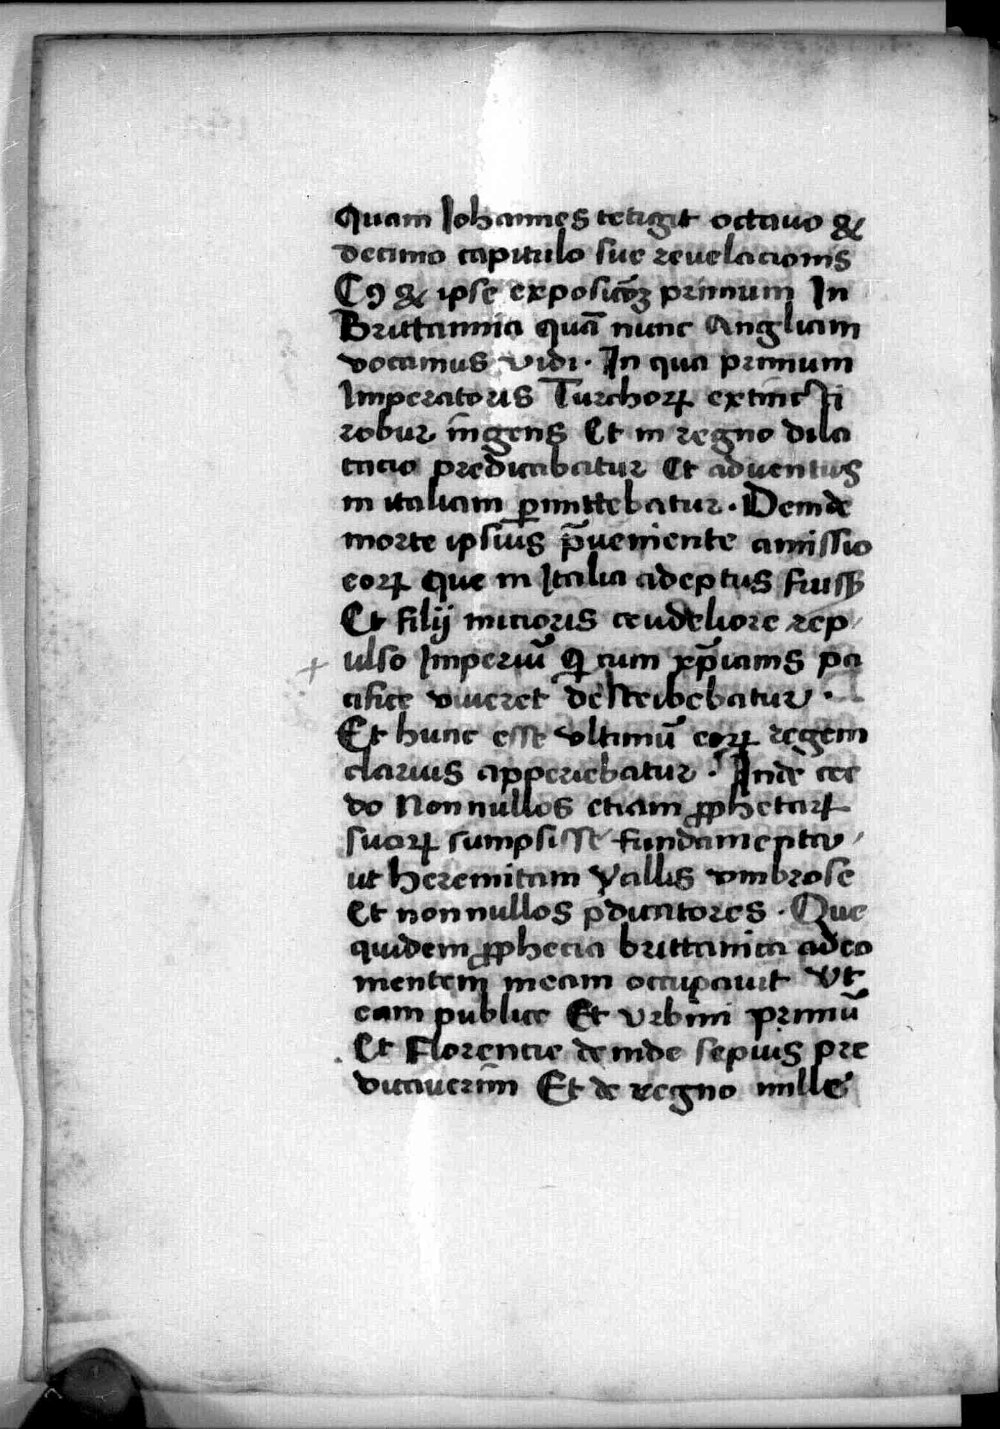 Quam Johannes tetigit octauo &
decimo capitulo sue reuelacionis
Cꝯ & ipse exposicõꝫ primum In
Brittannia quã nunc Angliam
vocamus vidi · In qua primum
Imperatoris Turchoꝝ extincti
robur ingens Et in regno dila
tacio predicabatur Et aduentus
in italiam ꝑmittebatur · Deinde
morte ipsius p̃ueniente amissio
eoꝝ que in Italia adeptus fuiss
Et filij micioris crudeliore rep
ulso Imperiũ Qi cum xp̃ianis pa
cifice viueret describebatur ·
Et hunc esse vltimũ eoꝝ regem
clarius apperiebatur · Inde cre
do Nonnullos etiam ꝓphetaꝝ
suoꝝ sumpsisse fundamenta
ut heremitam Vallis vmbrose
Et nonnullos p̄dicatores · Que
quidem ꝓphecia brittanica adeo
mentem meam occupauit Vt
eam publice Et Vrbini primũ
Et Florencie deinde sepius pre
dicauerim Et de regno mille